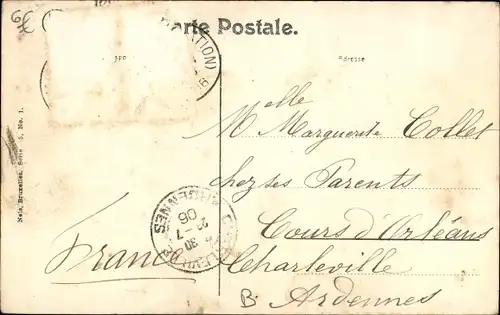 Carte Postale.
(STATION)
Adresse
Nels, Bruxelles, Serie 5, No. 1.
Melle Marguerite Collet
chez ses Parents
Cours d'Orléans
Charleville
Ardennes
France
ARDENNES
7
06
30
B.